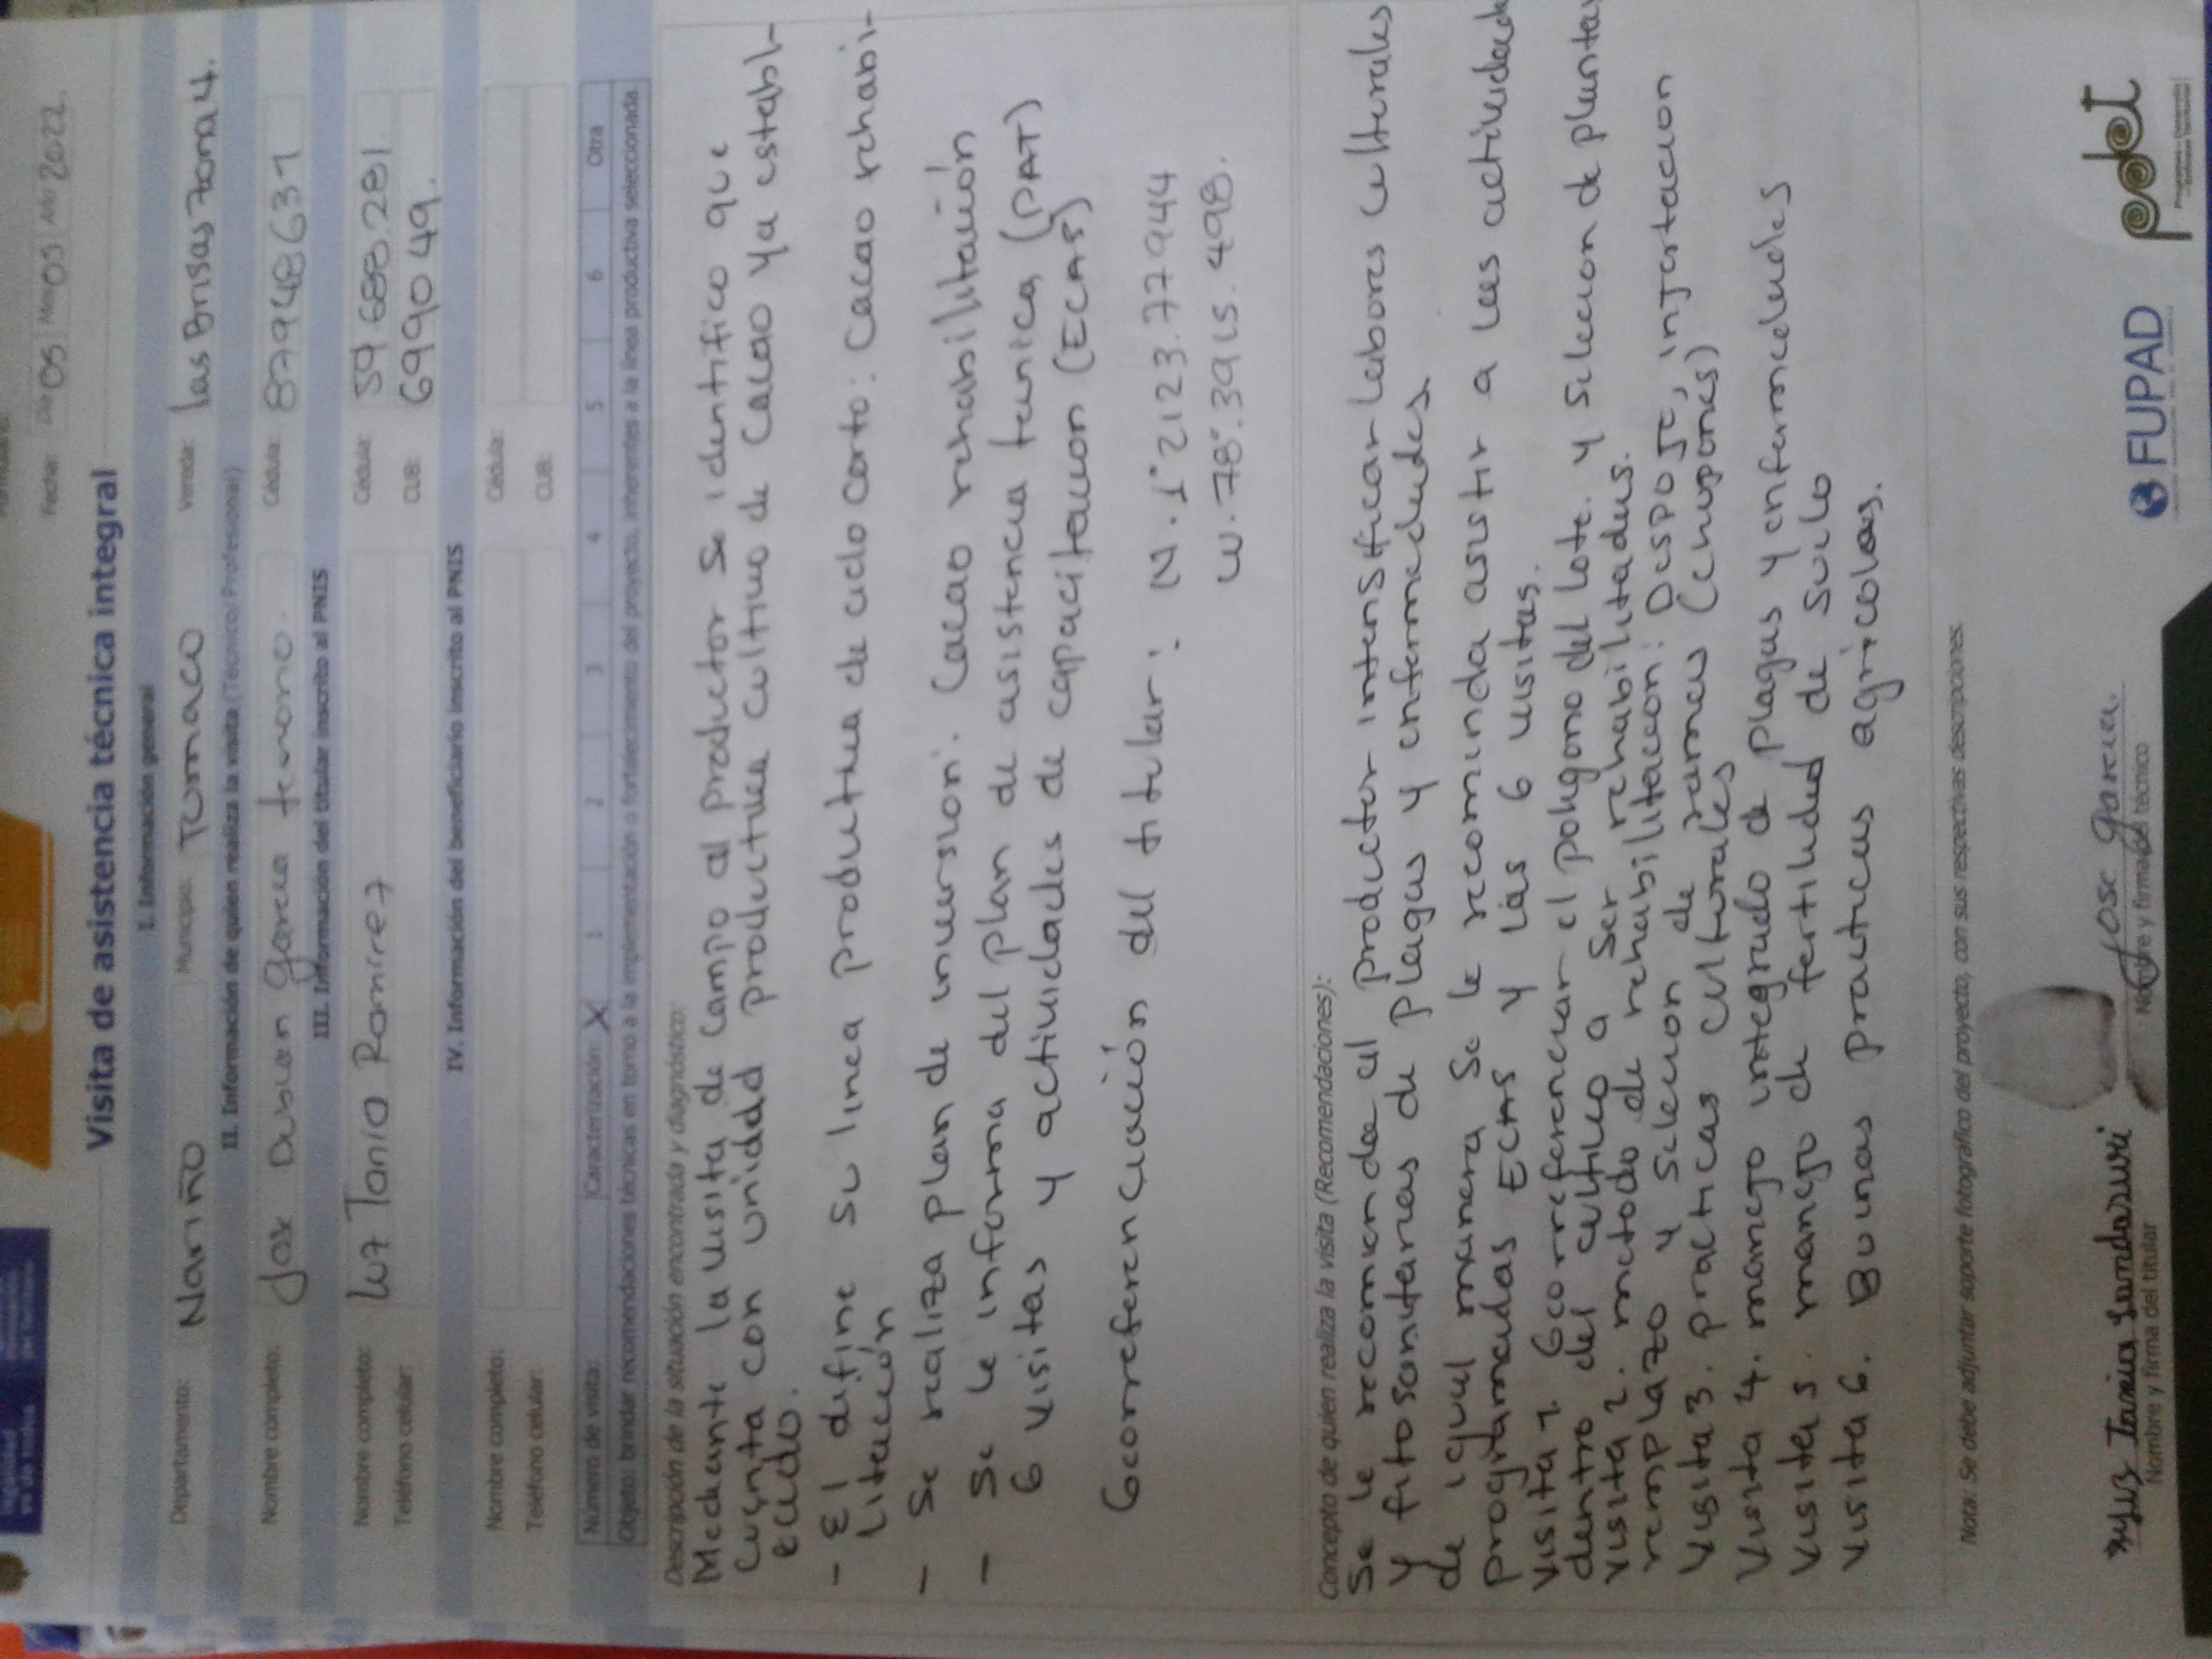 Fecha: Día 05 Mes 05 Año 2022
Visita de asistencia técnica integral
I. Información general
Departamento: Nariño Municipio: Tumaco Vereda: las Brisas zona 4.
II. Información de quien realiza la visita (Técnico/ Profesional)
Nombre completo: Jose Dubian garcia tenorio. Cédula: 87948631
III. Información del titular inscrito al PNIS
Nombre completo: luz Tania Ramirez Cédula: 59688281
Teléfono celular: CUB: 699049.
IV. Información del beneficiario inscrito al PNIS
Nombre completo: Cédula:
Teléfono celular: CUB:
Número de visita: Caracterización: X 1 2 3 4 5 6 Otra
Objeto: brindar recomendaciones técnicas en torno a la implementación o fortalecimiento del proyecto, inherentes a la línea productiva seleccionada.
Descripción de la situación encontrada y diagnóstico:
Mediante la visita de campo al productor se identifico que
cuenta con unidad productiva cultivo de cacao ya establ-
ecido.
- El define su linea productiva de ciclo corto: cacao rehabi-
litación
- Se realiza plan de inversion: Cacao rehabilitación
- Se le informa del plan de asistencia tecnica (PAT)
6 visitas y actividades de capacitacion (ECAS)
Georreferenciación del titular: N. 1° 2123.77944
W. 78°. 3915. 498.
Concepto de quien realiza la visita (Recomendaciones):
Se le recomienda al productor intensificar labores culturales
y fitosanitarias de plagas y enfermedades
de igual manera se le recominda asistir a las actividades
programadas ECAS y las 6 visitas.
Visita 1. Georreferenciar el poligono del lote. y seleccion de plantas
dentro del cultivo a ser rehabilitadas.
Visita 2. metodo de rehabilitacion: Desposte, injertacion
remplazo y seleccion de ramas (chupones)
Visita 3. practicas culturales
Visita 4. manejo integrado de plagas y enfermedades
Visita 5. manejo de fertilidad de suelo
Visita 6. Buenas practicas agricolas.
Nota: Se debe adjuntar soporte fotográfico del proyecto, con sus respectivas descripciones.
Jose garcia
Nombre y firma del titular Nombre y firma del técnico
FUPAD pdet